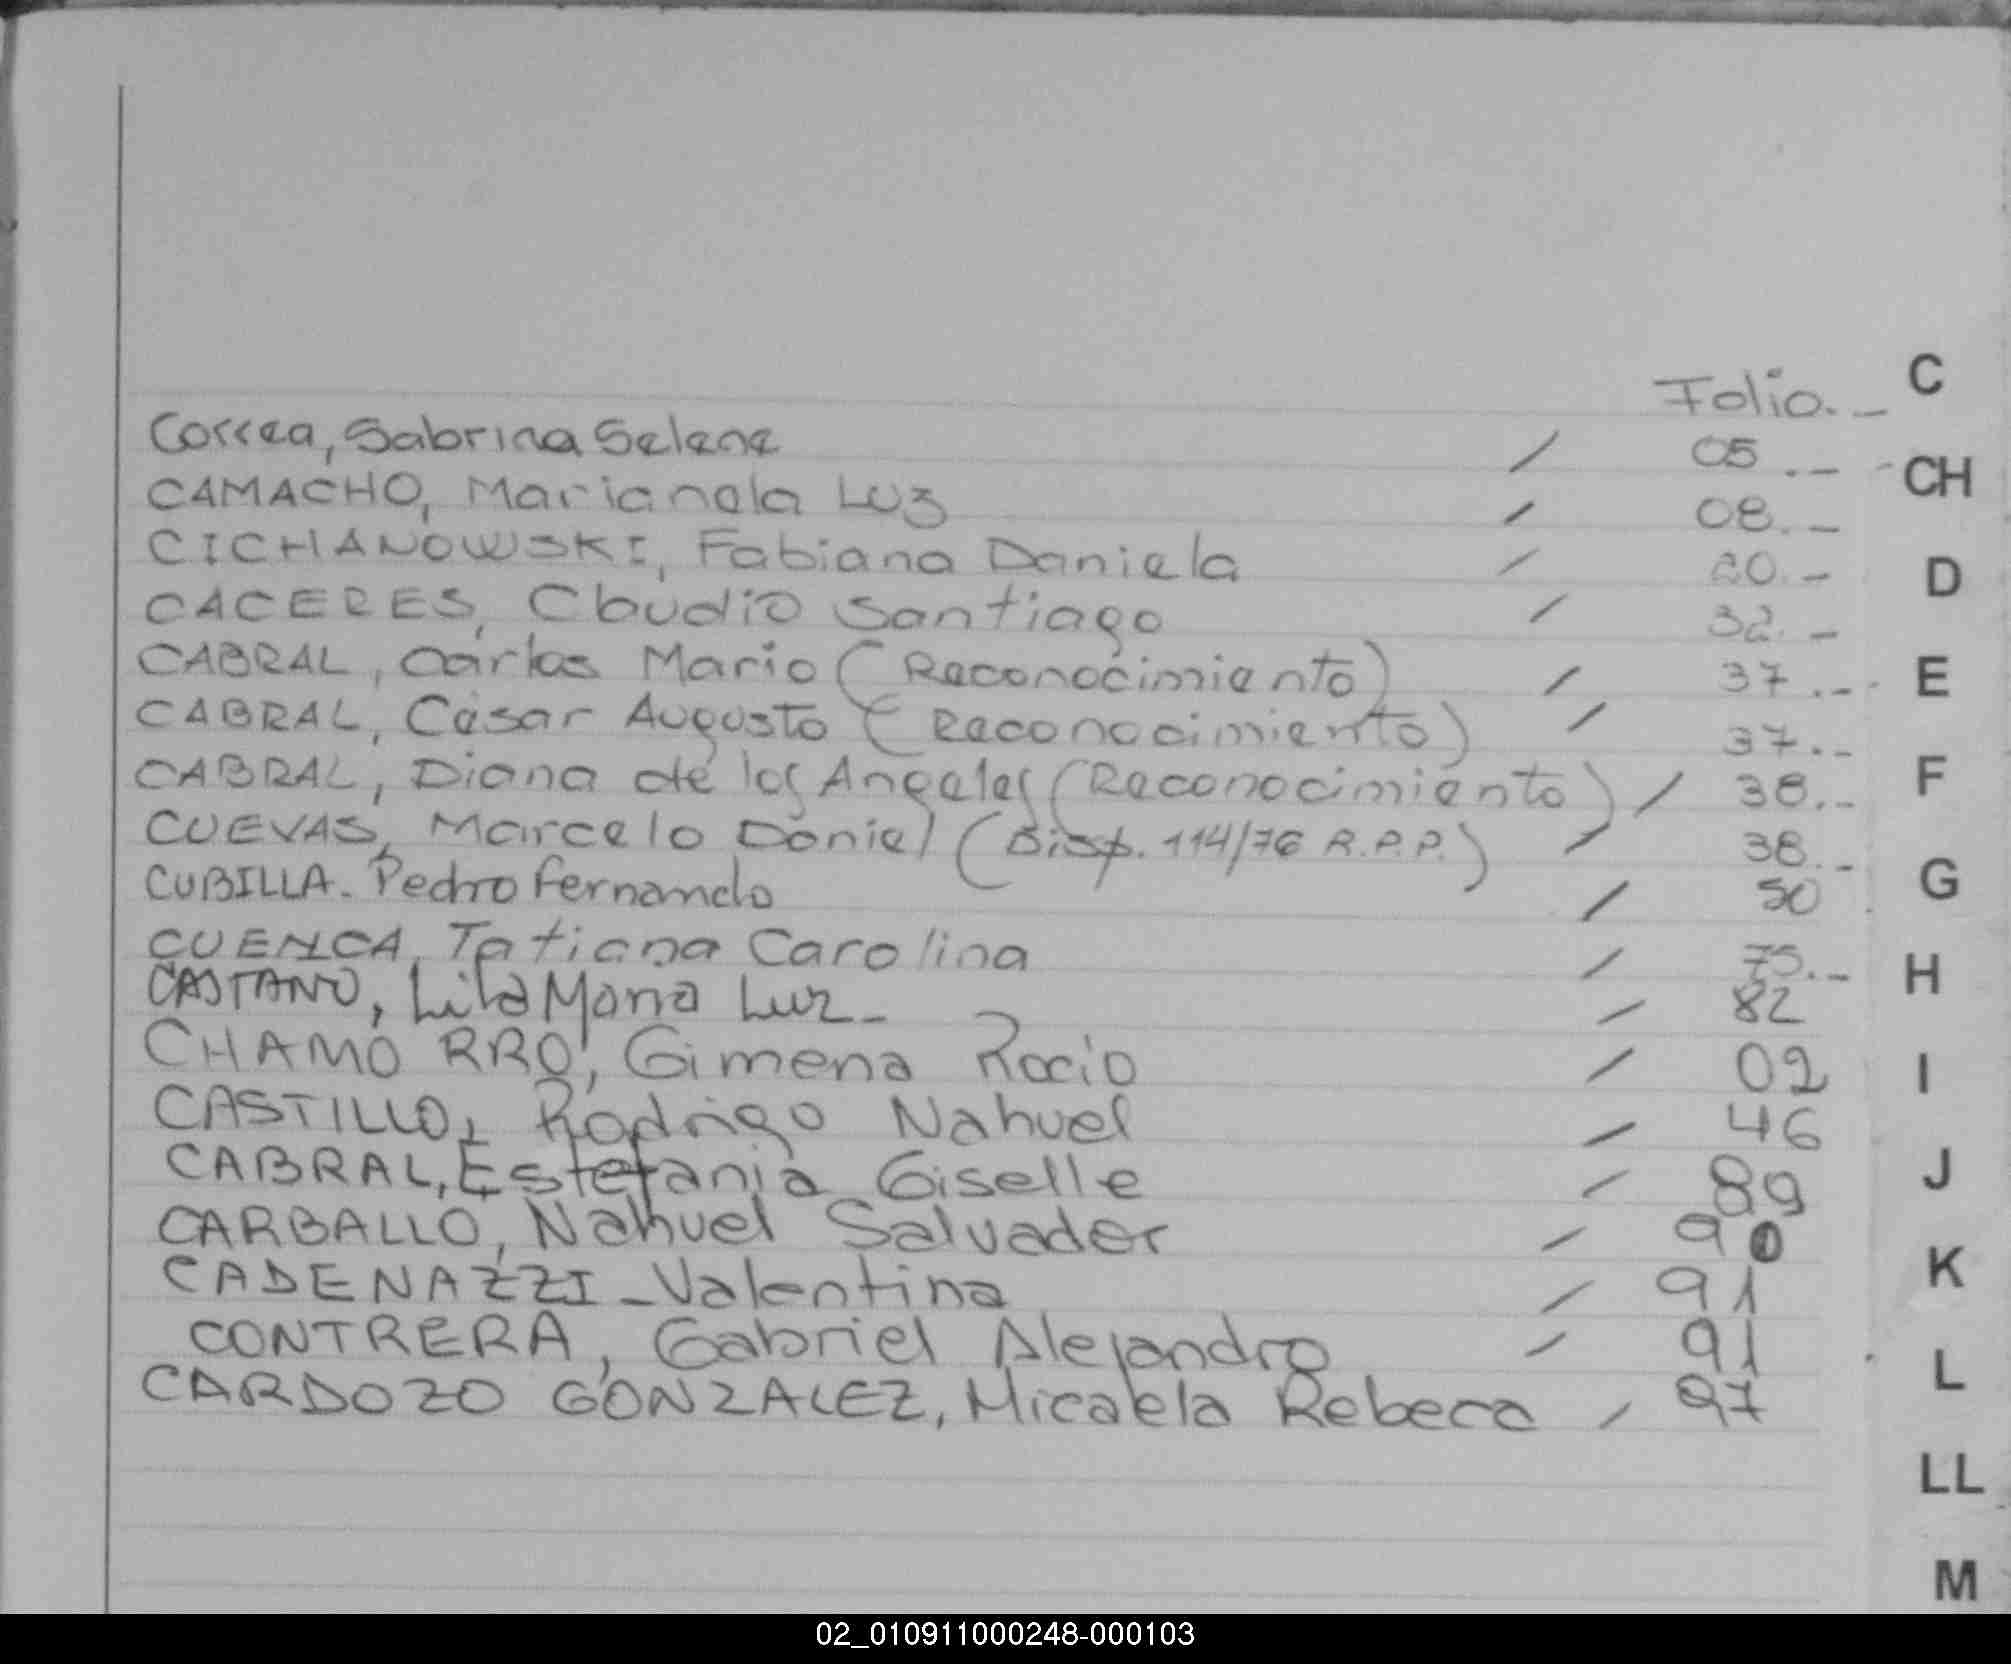 Folio._ C
Correa, Sabrina Selene / 05 ._
CH
CAMACHO, Marianela Luz / 08._
CICHANOWSKI, Fabiana Daniela / 20._
D
CACERES, Claudio Santiago / 32._
CABRAL, Carlos Mario (Reconocimiento) / 37._
E
CABRAL, César Augusto (Reconocimiento) / 37._
CABRAL, Diana de los Angeles (Reconocimiento) / 38._
F
CUEVAS, Marcelo Daniel (Disp. 114/76 R.P.P.) / 38._
CUBILLA. Pedro Fernando / 50
G
CUENCA, Tatiana Carolina / 75._
H
CASTANO, Lila Maria Luz_ / 82
CHAMORRO, Gimena Rocio / 02
I
CASTILLO, Rodrigo Nahuel / 46
CABRAL, Estefania Giselle / 89
J
CARBALLO, Nahuel Salvador / 90
CADENAZZI_Valentina / 91
K
CONTRERA, Gabriel Alejandro / 91
L
CARDOZO GONZALEZ, Micaela Rebeca / 97
LL
M
02_010911000248-000103